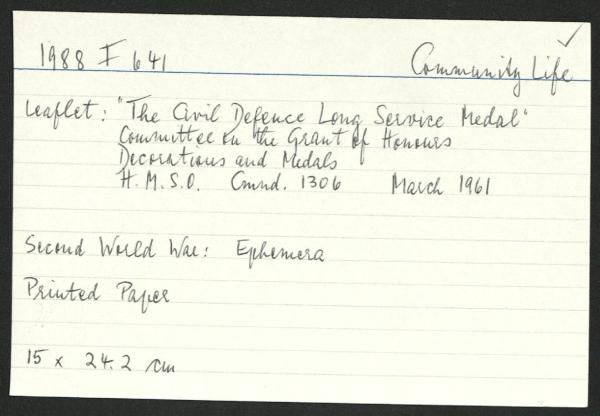 1988 I 641 Community Life
Leaflet: "The Civil Defence Long Service Medal"
Committee on the Grant of Honours
Decorations and Medals
H.M.S.O. Cmnd. 1306 March 1961
Second World War: Ephemera
Printed Paper
15 x 24.2 cm